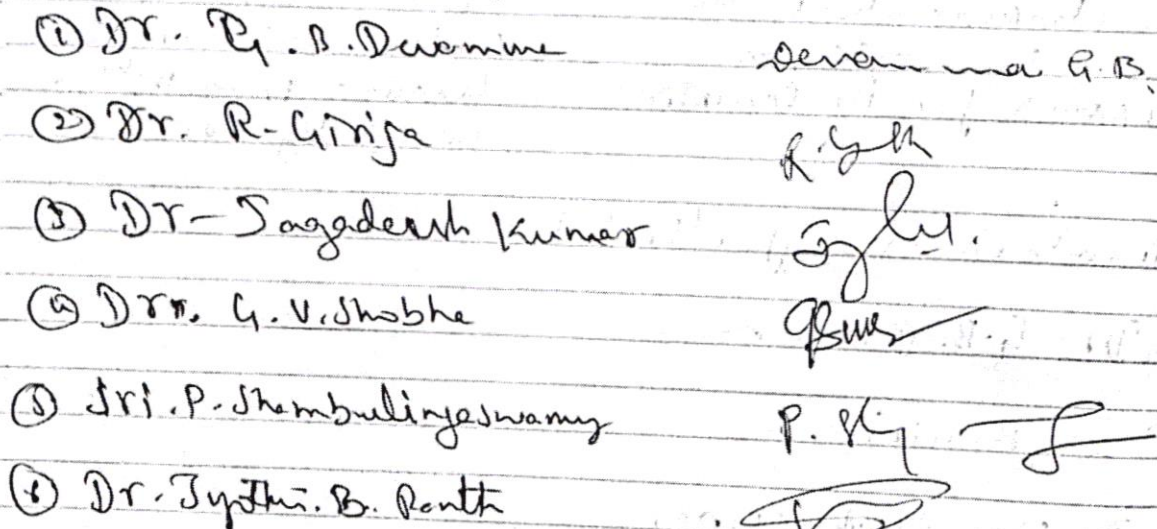 ① Dr. G.B. Devamma Devamma G.B.
② Dr. R. Girija
③ Dr - Jagadeesh Kumar
④ Dr. G.V. Shobha
⑤ Sri. P. Shambulingaswamy
⑥ Dr. Jyothi. B.